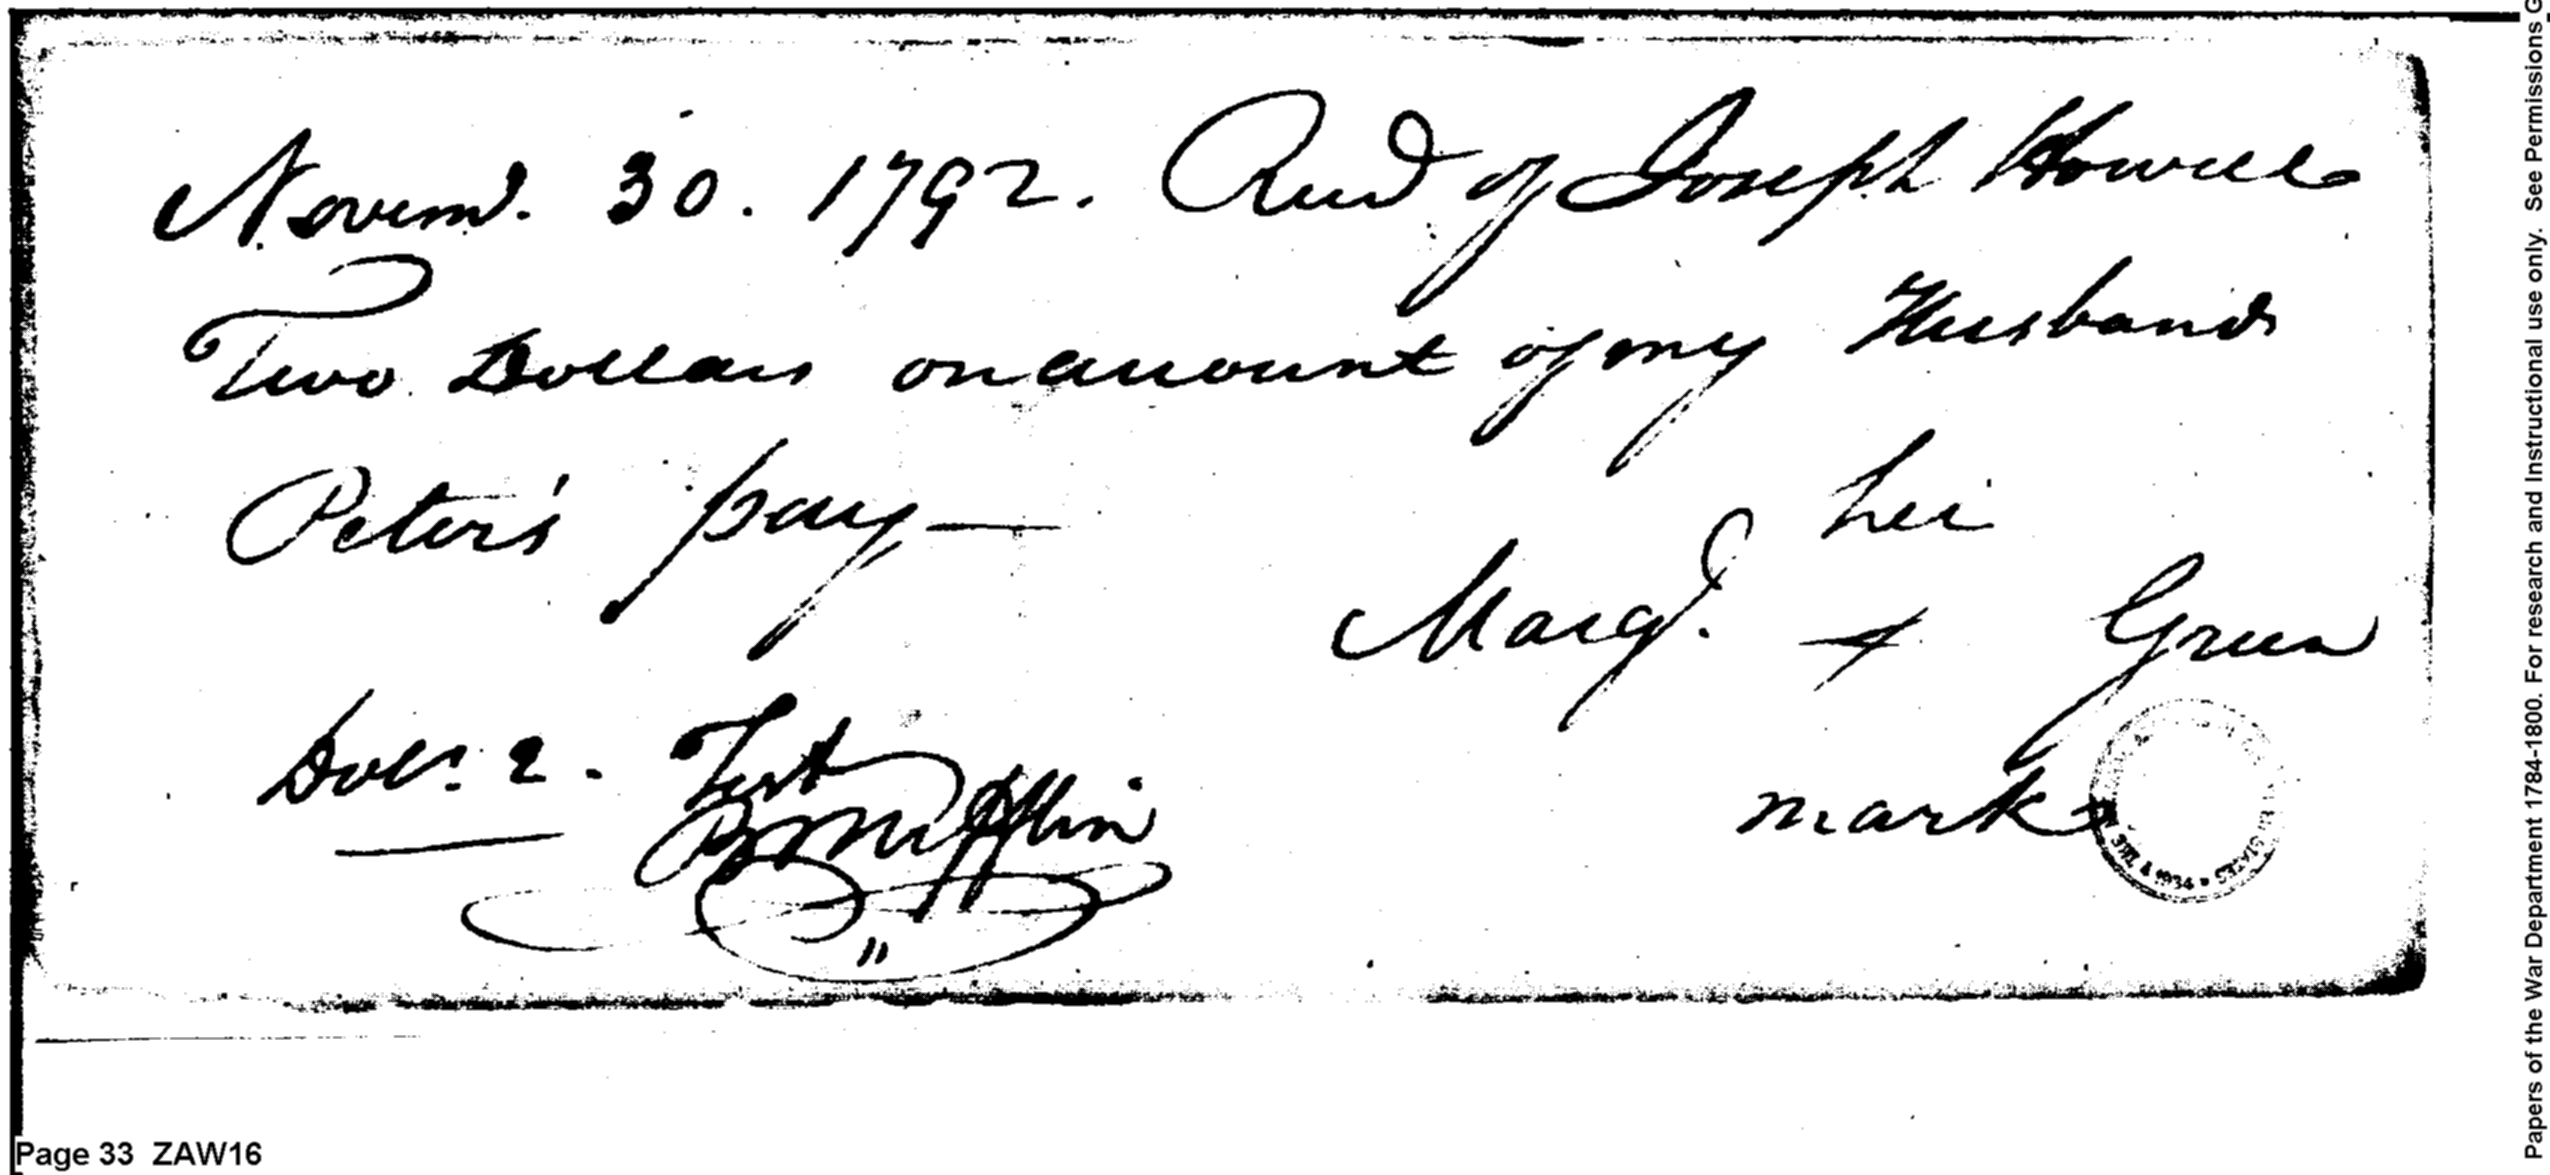 Novem^r. 30. 1792. Recd of Joseph Howell
Two Dollars on account of my Husbands
Peter's pay—
her
Marg^t. + Green
mark
Doll^s. 2. Test
Mifflin
JUL 4 1934
Page 33 ZAW16
Papers of the War Department 1784-1800. For research and Instructional use only. See Permissions